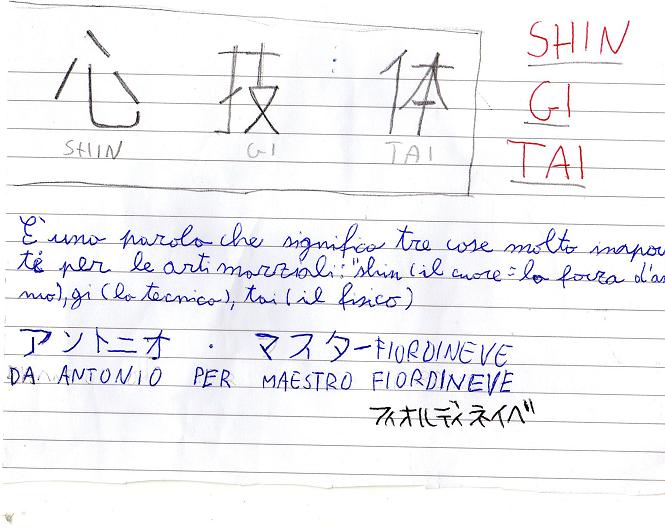 心 技 体
SHIN GI TAI
SHIN
GI
TAI
È una parola che significa tre cose molto inapor
té per le arti marziali: "shin (il cuore = la forza d'an
mo), gi (la tecnica), tai (il fisico)
アントニオ ・ マスターFIORDINEVE
DA ANTONIO PER MAESTRO FIORDINEVE
フィオルディネイベ